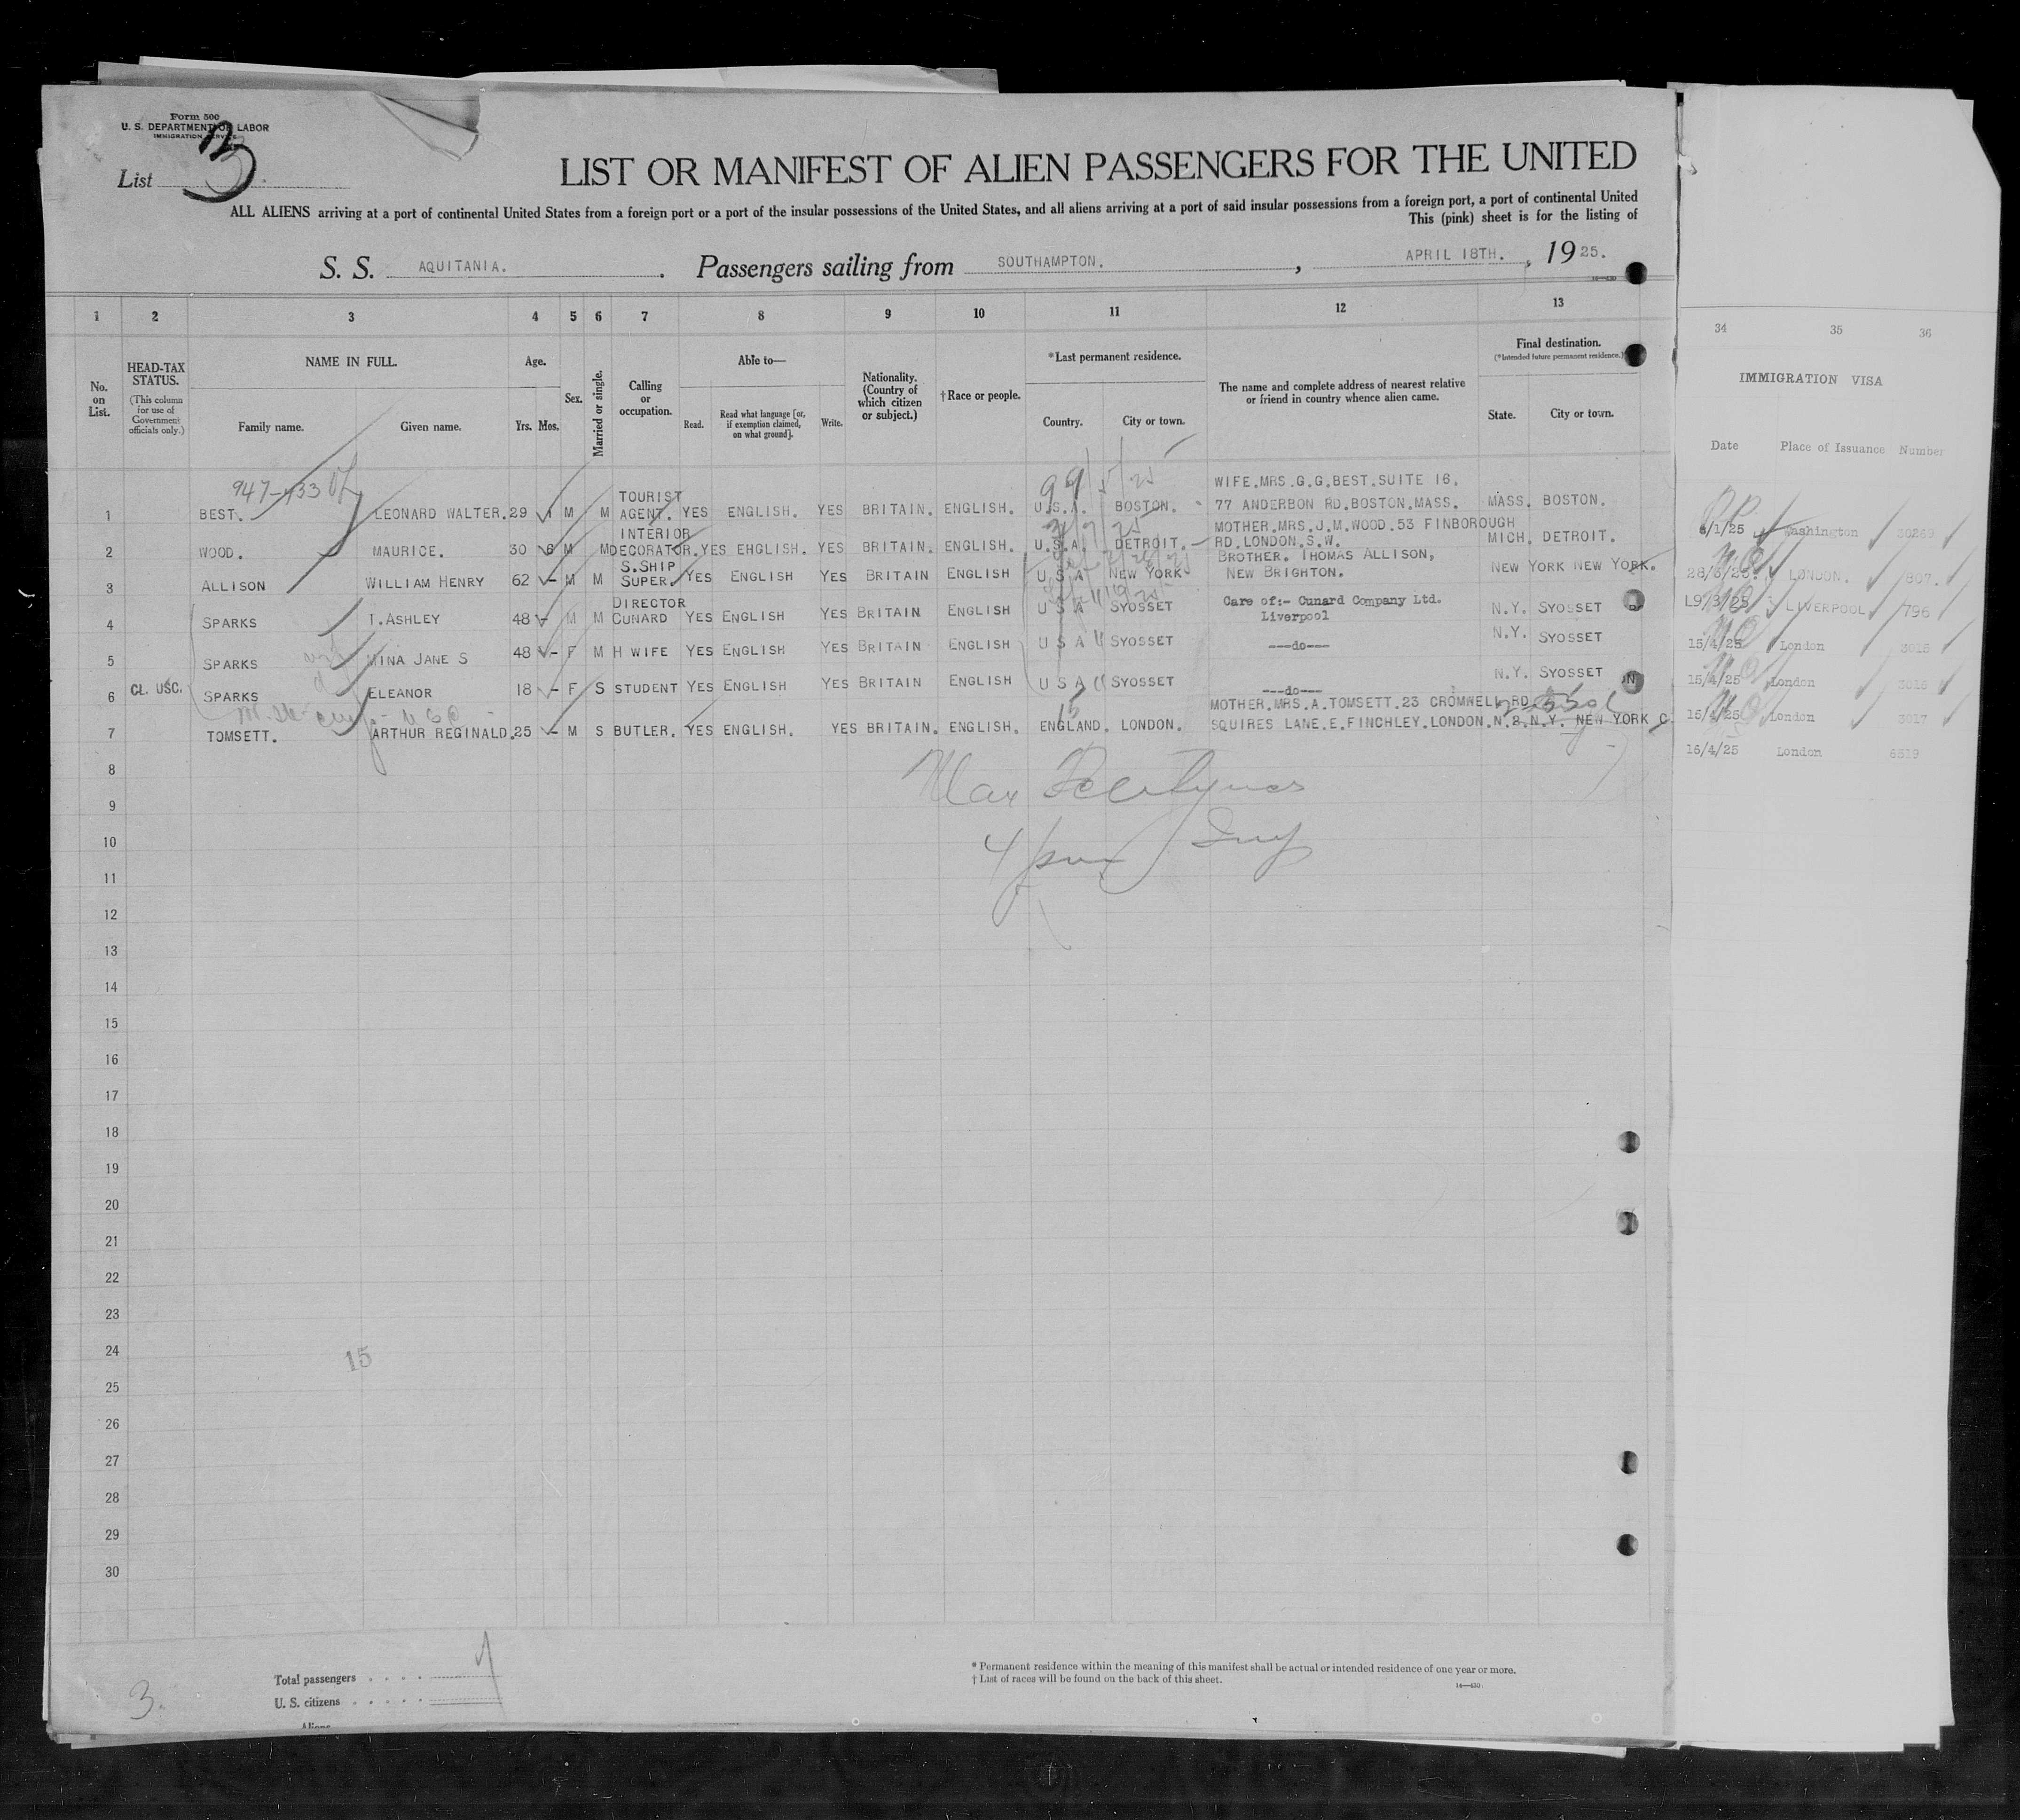 Form 500
U. S. DEPARTMENT OF LABOR
IMMIGRATION SERVICE
List 3
LIST OR MANIFEST OF ALIEN PASSENGERS FOR THE UNITED
ALL ALIENS arriving at a port of continental United States from a foreign port or a port of the insular possessions of the United States, and all aliens arriving at a port of said insular possessions from a foreign port, a port of continental United
This (pink) sheet is for the listing of
S. S. AQUITANIA. Passengers sailing from SOUTHAMPTON, APRIL 18TH. , 1925.
1 2 3 4 5 6 7 8 9 10 11 12 13
34 35 36
No. on List.
HEAD-TAX STATUS.
(This column for use of Government officials only.)
NAME IN FULL.
Family name. Given name.
Age.
Yrs. Mos.
Sex.
Married or single.
Calling or occupation.
Able to—
Read. Read what language [or, if exemption claimed, on what ground]. Write.
Nationality. (Country of which citizen or subject.)
†Race or people.
*Last permanent residence.
Country. City or town.
The name and complete address of nearest relative or friend in country whence alien came.
Final destination.
(*Intended future permanent residence.)
State. City or town.
IMMIGRATION VISA
Date Place of Issuance Number
947-433
1 BEST. LEONARD WALTER. 29 1 M M TOURIST AGENT. YES ENGLISH. YES BRITAIN. ENGLISH. U.S.A. BOSTON. WIFE.MRS.G.G.BEST.SUITE 16. 77 ANDERBON RD.BOSTON.MASS. MASS. BOSTON.
2 WOOD. MAURICE. 30 6 M M INTERIOR DECORATOR. YES EHGLISH. YES BRITAIN. ENGLISH. U.S.A. DETROIT. MOTHER.MRS.J.M.WOOD.53 FINBOROUGH RD.LONDON.S.W. MICH. DETROIT.
3 ALLISON WILLIAM HENRY 62 - M M S.SHIP SUPER. YES ENGLISH YES BRITAIN ENGLISH U S A NEW YORK BROTHER. THOMAS ALLISON, NEW BRIGHTON. NEW YORK NEW YORK.
4 SPARKS T.ASHLEY 48 - M M DIRECTOR CUNARD YES ENGLISH YES BRITAIN ENGLISH U S A SYOSSET Care of:- Cunard Company Ltd. Liverpool N.Y. SYOSSET
5 SPARKS MINA JANE S 48 - F M H WIFE YES ENGLISH YES BRITAIN ENGLISH U S A SYOSSET ---do--- N.Y. SYOSSET
6 CL. USC. SPARKS ELEANOR 18 - F S STUDENT YES ENGLISH YES BRITAIN ENGLISH U S A SYOSSET ---do--- N.Y. SYOSSET
7 TOMSETT. ARTHUR REGINALD. 25 - M S BUTLER. YES ENGLISH. YES BRITAIN. ENGLISH. ENGLAND. LONDON. MOTHER.MRS.A.TOMSETT.23 CROMWELL RD SQUIRES LANE.E.FINCHLEY.LONDON.N.2. N.Y. NEW YORK C.
6/1/25 Washington 30269
LONDON. 807.
LIVERPOOL 796
15/4/25 London 3015
15/4/25 London 3016
15/4/25 London 3017
16/4/25 London 6519
8
9
10
11
12
13
14
15
16
17
18
19
20
21
22
23
24
25
26
27
28
29
30
15
Total passengers
U. S. citizens
Aliens
3.
* Permanent residence within the meaning of this manifest shall be actual or intended residence of one year or more.
† List of races will be found on the back of this sheet.
14—430